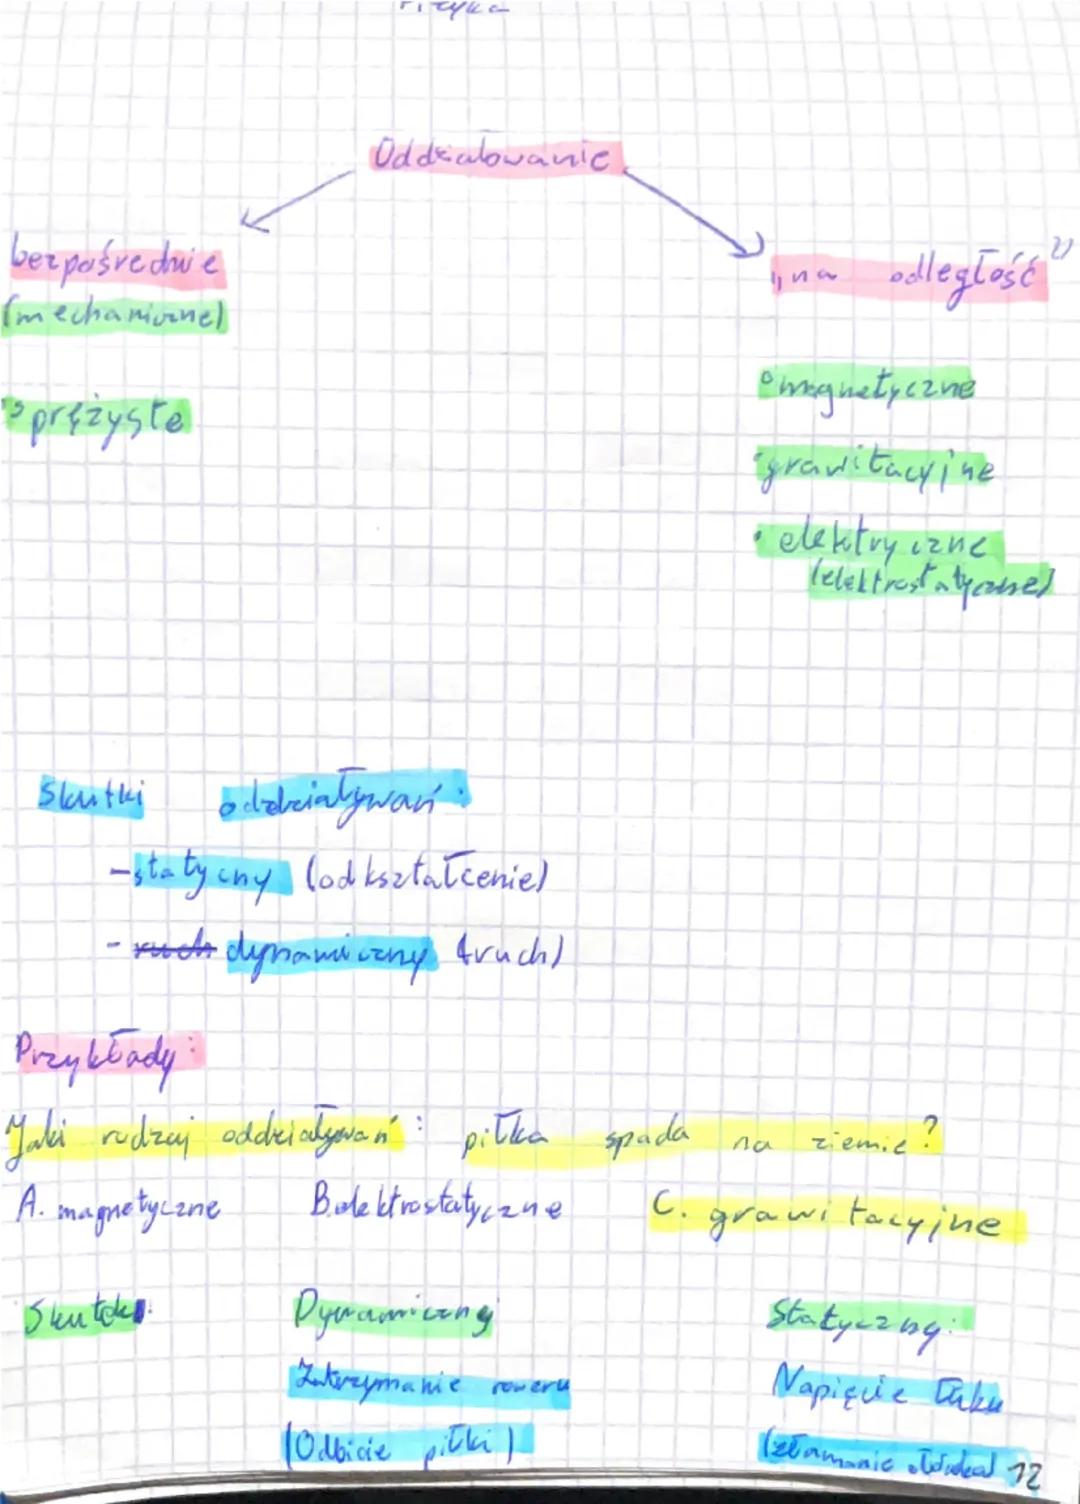 Fizyka
Oddziaływanie
bezpośrednie
(mechaniczne)
sprężyste
„na odległość”
magnetyczne
grawitacyjne
elektryczne
(elektrostatyczne)
Skutki oddziaływań:
- statyczny (odkształcenie)
- ruch dynamiczny (ruch)
Przykłady:
Jaki rodzaj oddziaływań: piłka spada na ziemie?
A. magnetyczne B. elektrostatyczne C. grawitacyjne
Skutek: Dynamiczny Statyczny:
Zatrzymanie roweru Napięcie łuku
(Odbicie piłki) (złamanie
12